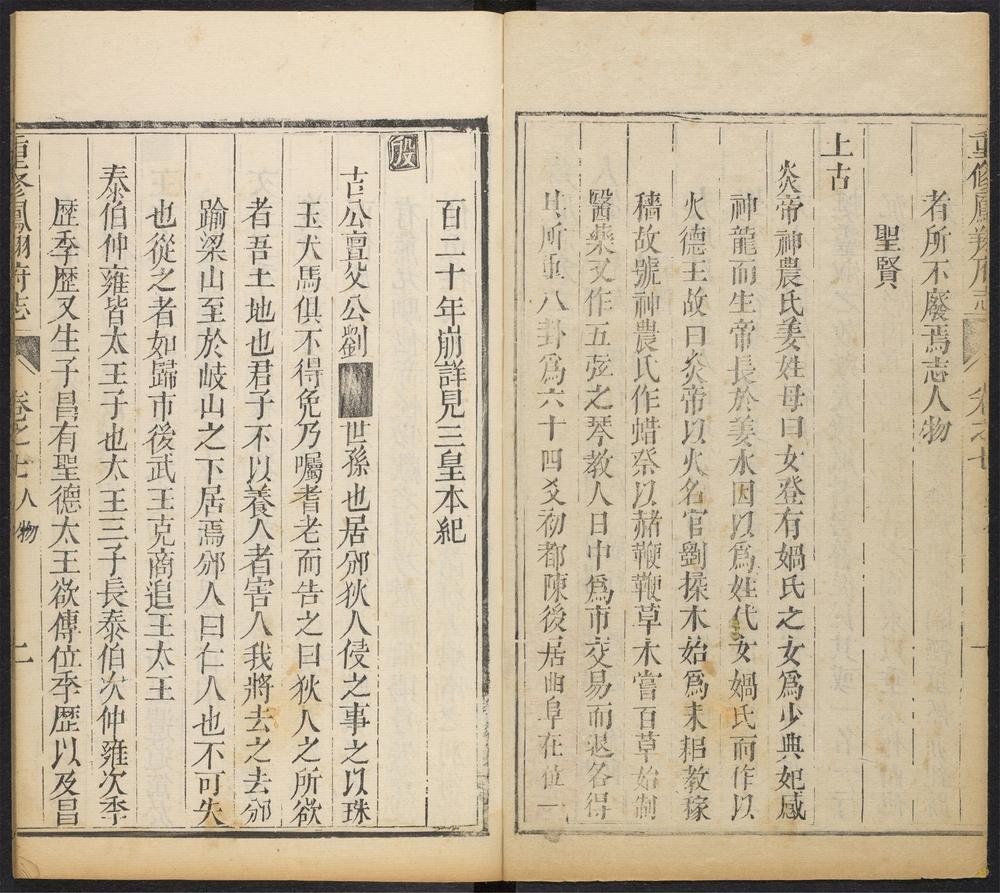 重修鳳翔府志 卷之七 一
者所不廢焉志人物
聖賢
上古
炎帝神農氏姜姓母曰女登有媧氏之女爲少典妃感
神龍而生帝長於姜水因以爲姓代女媧氏而作以
火德王故曰炎帝以火名官斲揉木始爲耒耜教稼
穡故號神農氏作蜡祭以赭鞭鞭草木嘗百草始制
醫藥又作五弦之琴教人日中爲市交易而退各得
其所重八卦爲六十四爻初都陳後居曲阜在位一
百二十年崩詳見三皇本紀
殷
古公亶父公劉世孫也居邠狄人侵之事之以珠
玉犬馬俱不得免乃囑耆老而告之曰狄人之所欲
者吾土地也君子不以養人者害人我將去之去邠
踰梁山至於岐山之下居焉邠人曰仁人也不可失
也從之者如歸市後武王克商追王太王
泰伯仲雍皆太王子也太王三子長泰伯次仲雍次季
歷季歷又生子昌有聖德太王欲傳位季歷以及昌
重修鳳翔府志 卷之七人物 二